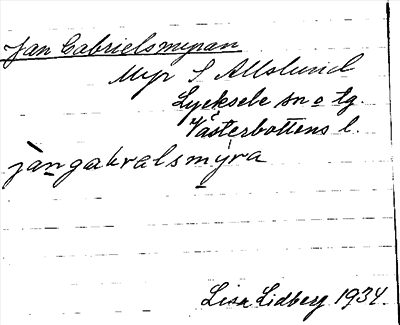 Jan Gabrielsmyran
Myr S Allslund
Lycksele sn o tg.
Västerbottens l.
jàngabralsmýra
Lisa Lidberg 1934.